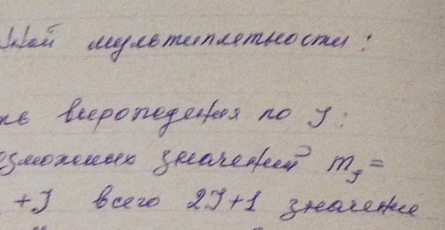 ной мультиплетности:
нь вырождения по J:
зможных значений m_J =
+J всего 2J+1 значение